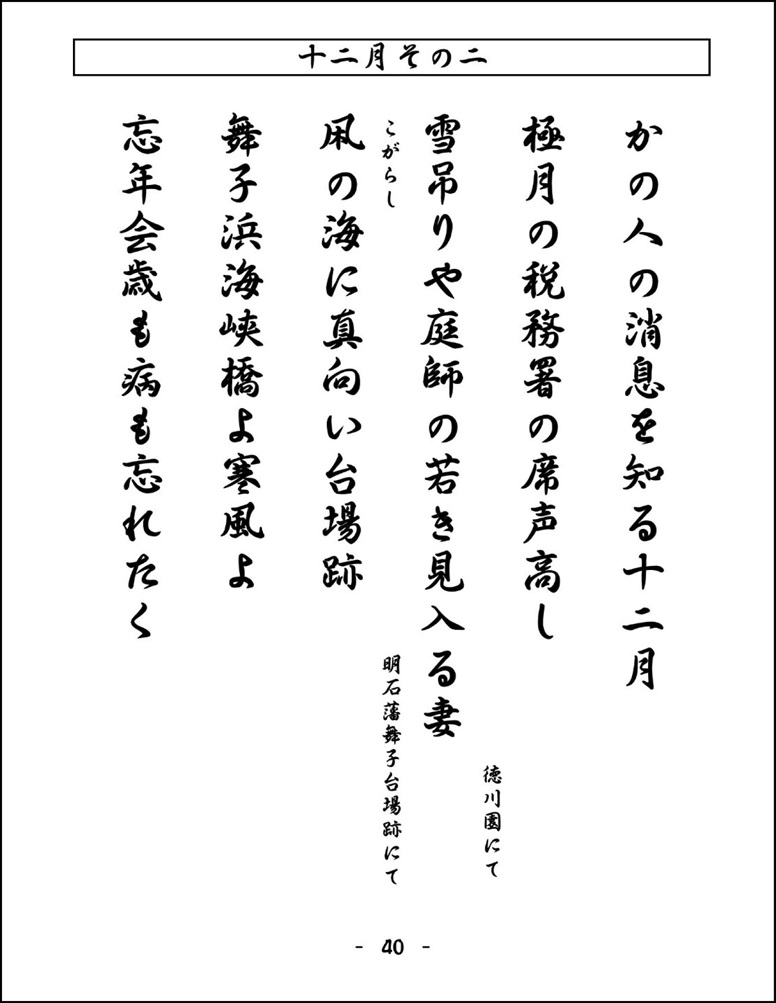 十二月その二
かの人の消息を知る十二月
極月の税務署の席声高し
雪吊りや庭師の若き見入る妻
徳川園にて
凩の海に真向い台場跡
こがらし
明石藩舞子台場跡にて
舞子浜海峡橋よ寒風よ
忘年会歳も病も忘れたく
- 40 -